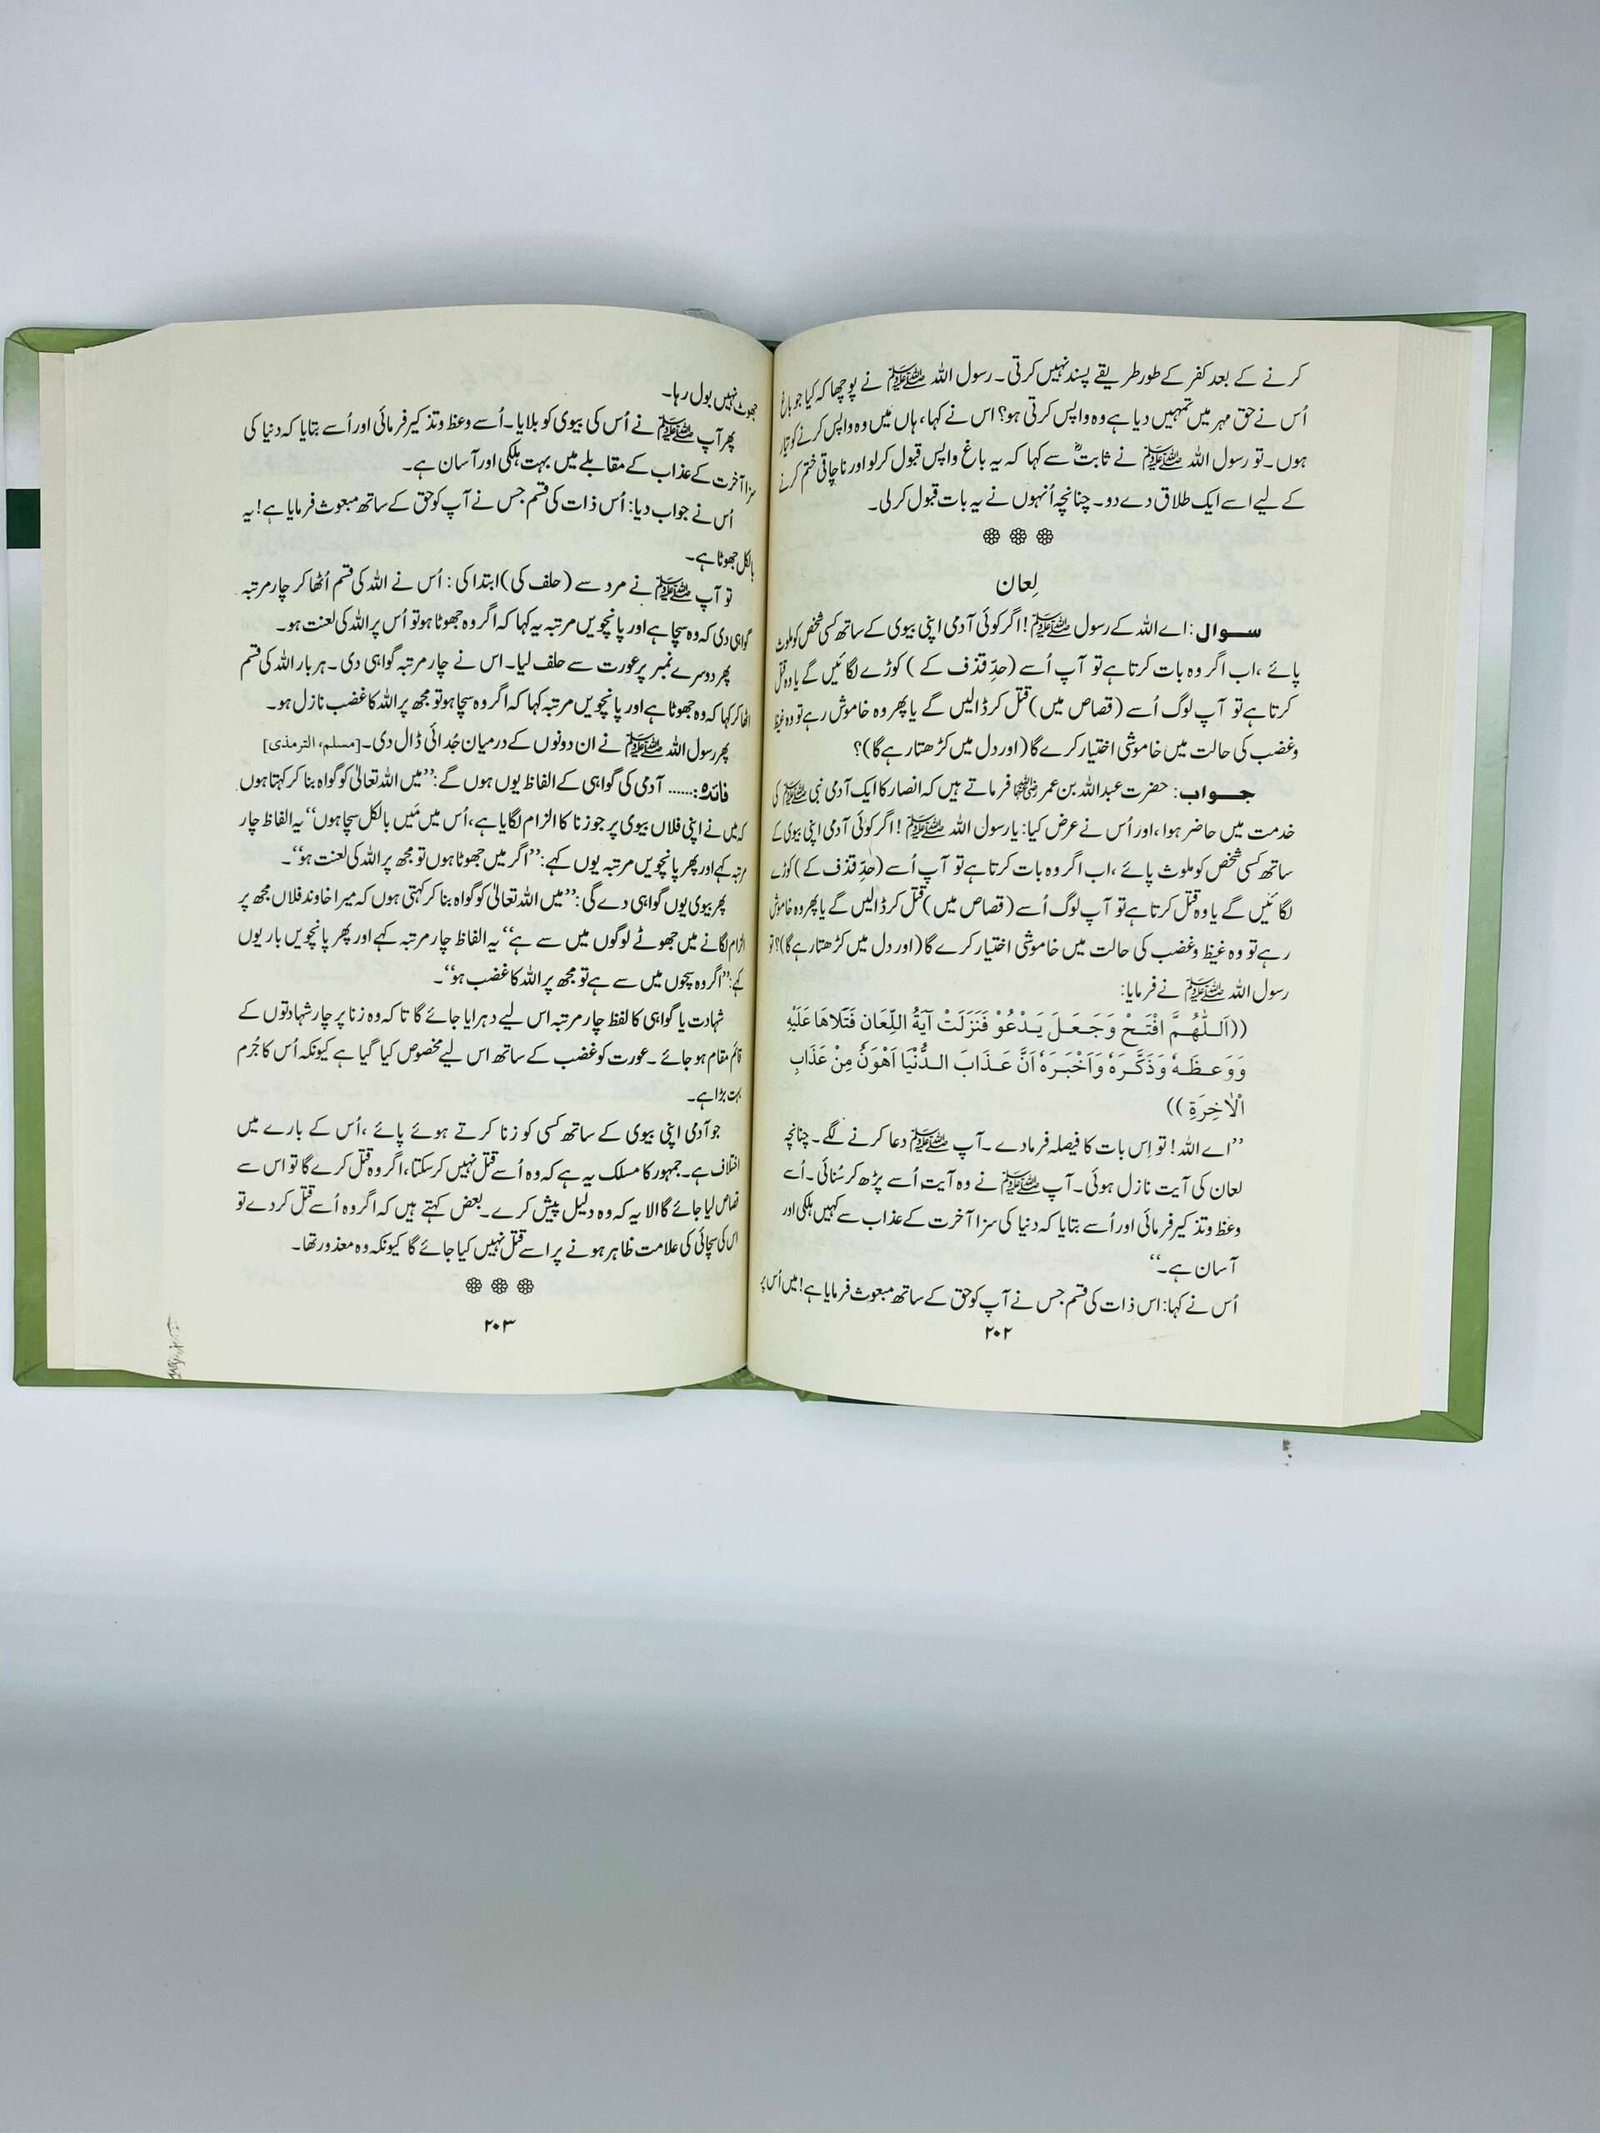 کرنے کے بعد کفر کے طور طریقے پسند نہیں کرتی۔ رسول اللہ ﷺ نے پوچھا کہ کیا جو باغ
اُس نے حق مہر میں تمہیں دیا ہے وہ واپس کرتی ہو؟ اس نے کہا، ہاں میں وہ واپس کرنے کو تیار
ہوں۔ تو رسول اللہ ﷺ نے ثابتؓ سے کہا کہ یہ باغ واپس قبول کرلو اور ناچاتی ختم کرنے
کے لیے اسے ایک طلاق دے دو۔ چنانچہ اُنہوں نے یہ بات قبول کرلی۔
لِعان
سوال: اے اللہ کے رسول ﷺ! اگر کوئی آدمی اپنی بیوی کے ساتھ کسی شخص کو ملوث
پائے، اب اگر وہ بات کرتا ہے تو آپ اُسے (حدِّ قذف کے) کوڑے لگائیں گے یا وہ قتل
کرتا ہے تو آپ لوگ اُسے (قصاص میں) قتل کر ڈالیں گے یا پھر وہ خاموش رہے تو وہ غیظ
وغضب کی حالت میں خاموشی اختیار کرے گا (اور دل میں کڑھتا رہے گا)؟
جواب: حضرت عبداللہ بن عمر رضی اللہ عنہما فرماتے ہیں کہ انصار کا ایک آدمی نبی ﷺ کی
خدمت میں حاضر ہوا، اور اُس نے عرض کیا: یا رسول اللہ ﷺ! اگر کوئی آدمی اپنی بیوی کے
ساتھ کسی شخص کو ملوث پائے، اب اگر وہ بات کرتا ہے تو آپ اُسے (حدِّ قذف کے) کوڑے
لگائیں گے یا وہ قتل کرتا ہے تو آپ لوگ اُسے (قصاص میں) قتل کر ڈالیں گے یا پھر وہ خاموش
رہے تو وہ غیظ وغضب کی حالت میں خاموشی اختیار کرے گا (اور دل میں کڑھتا رہے گا)؟ تو
رسول اللہ ﷺ نے فرمایا:
((اَللّٰهُمَّ افْتَحْ وَجَعَلَ يَدْعُوْ فَنَزَلَتْ آيَةُ اللِّعَانِ فَتَلَاهَا عَلَيْهِ
وَوَعَظَهٗ وَذَكَّرَهٗ وَاَخْبَرَهٗ اَنَّ عَذَابَ الدُّنْيَا اَهْوَنُ مِنْ عَذَابِ
الْاٰخِرَةِ))
’’اے اللہ! تو اِس بات کا فیصلہ فرمادے۔ آپ ﷺ دعا کرنے لگے۔ چنانچہ
لعان کی آیت نازل ہوئی۔ آپ ﷺ نے وہ آیت اُسے پڑھ کر سُنائی۔ اُسے
وعظ وتذکیر فرمائی اور اُسے بتایا کہ دنیا کی سزا آخرت کے عذاب سے کہیں ہلکی اور
آسان ہے۔‘‘
اُس نے کہا: اس ذات کی قسم جس نے آپ کو حق کے ساتھ مبعوث فرمایا ہے! میں اُس پر
۲۰۲
جھوٹ نہیں بول رہا۔
پھر آپ ﷺ نے اُس کی بیوی کو بلایا۔ اُسے وعظ وتذکیر فرمائی اور اُسے بتایا کہ دنیا کی
سزا آخرت کے عذاب کے مقابلے میں بہت ہلکی اور آسان ہے۔
اُس نے جواب دیا: اُس ذات کی قسم جس نے آپ کو حق کے ساتھ مبعوث فرمایا ہے! یہ
بالکل جھوٹا ہے۔
تو آپ ﷺ نے مرد سے (حلف کی) ابتدا کی: اُس نے اللہ کی قسم اُٹھا کر چار مرتبہ
گواہی دی کہ وہ سچا ہے اور پانچویں مرتبہ یہ کہا کہ اگر وہ جھوٹا ہو تو اُس پر اللہ کی لعنت ہو۔
پھر دوسرے نمبر پر عورت سے حلف لیا۔ اس نے چار مرتبہ گواہی دی۔ ہر بار اللہ کی قسم
اٹھا کر کہا کہ وہ جھوٹا ہے اور پانچویں مرتبہ کہا کہ اگر وہ سچا ہو تو مجھ پر اللہ کا غضب نازل ہو۔
پھر رسول اللہ ﷺ نے ان دونوں کے درمیان جُدائی ڈال دی۔ [مسلم، الترمذی]
فائدہ:...... آدمی کی گواہی کے الفاظ یوں ہوں گے: ’’میں اللہ تعالیٰ کو گواہ بنا کر کہتا ہوں
کہ میں نے اپنی فلاں بیوی پر جو زنا کا الزام لگایا ہے، اُس میں مَیں بالکل سچا ہوں‘‘ یہ الفاظ چار
مرتبہ کہے اور پھر پانچویں مرتبہ یوں کہے: ’’اگر میں جھوٹا ہوں تو مجھ پر اللہ کی لعنت ہو‘‘۔
پھر بیوی یوں گواہی دے گی: ’’میں اللہ تعالیٰ کو گواہ بنا کر کہتی ہوں کہ میرا خاوند فلاں مجھ پر
الزام لگانے میں جھوٹے لوگوں میں سے ہے‘‘ یہ الفاظ چار مرتبہ کہے اور پھر پانچویں بار یوں
کہے: ’’اگر وہ سچوں میں سے ہے تو مجھ پر اللہ کا غضب ہو‘‘۔
شہادت یا گواہی کا لفظ چار مرتبہ اس لیے دہرایا جائے گا تاکہ وہ زنا پر چار شہادتوں کے
قائم مقام ہو جائے۔ عورت کو غضب کے ساتھ اس لیے مخصوص کیا گیا ہے کیونکہ اُس کا جُرم
بہت بڑا ہے۔
جو آدمی اپنی بیوی کے ساتھ کسی کو زنا کرتے ہوئے پائے، اُس کے بارے میں
اختلاف ہے۔ جمہور کا مسلک یہ ہے کہ وہ اُسے قتل نہیں کرسکتا، اگر وہ قتل کرے گا تو اس سے
قصاص لیا جائے گا الا یہ کہ وہ دلیل پیش کرے۔ بعض کہتے ہیں کہ اگر وہ اُسے قتل کر دے تو
اس کی سچائی کی علامت ظاہر ہونے پر اسے قتل نہیں کیا جائے گا کیونکہ وہ معذور تھا۔
۲۰۳